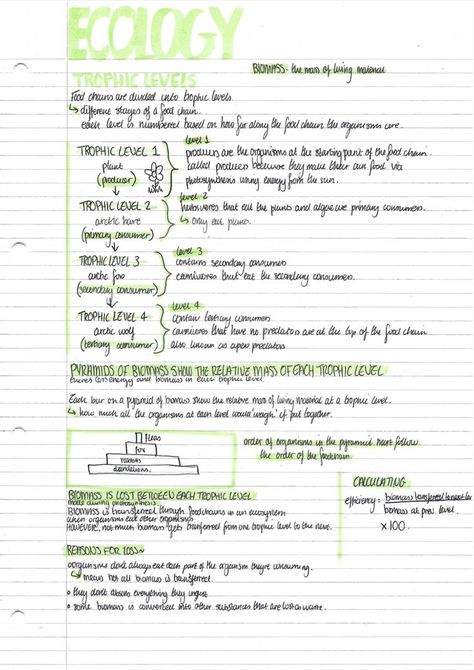 ECOLOGY
BIOMASS - the mass of living material
TROPHIC LEVELS
Food chains are divided into trophic levels.
↳ different stages of a food chain.
each level is numbered based on how far along the food chain the organisms are.
TROPHIC LEVEL 1
plant
(producer)
level 1
producers are the organisms at the starting point of the food chain.
called producers because they make their own food via
photosynthesis using energy from the sun.
TROPHIC LEVEL 2
arctic hare
(primary consumer)
level 2
herbivores that eat the plants and algae are primary consumers.
↳ only eat plants.
TROPHIC LEVEL 3
arctic fox
(secondary consumer)
level 3
contains secondary consumers
carnivores that eat the secondary consumers.
TROPHIC LEVEL 4
arctic wolf
(tertiary consumer)
level 4
contain tertiary consumers
carnivores that have no predators are at the top of the food chain
also known as apex predators
PYRAMIDS OF BIOMASS SHOW THE RELATIVE MASS OF EACH TROPHIC LEVEL
energy and biomass in each trophic level.
Each bar on a pyramid of biomass show the relative mass of living material at a trophic level.
↳ how much all the organisms at each level would 'weigh' if put together.
fleas
fox
rabbits
dandelions.
order of organisms in the pyramid must follow
the order of the foodchain.
BIOMASS IS LOST BETWEEN EACH TROPHIC LEVEL
made during photosynthesis.
BIOMASS is transferred through foodchains in an ecosystem
when organisms eat other organisms
HOWEVER, not much biomass gets transferred from one trophic level to the next.
CALCULATING
efficiency = biomass transferred to next
biomass at prev. level
x 100.
REASONS FOR LOSS~
organisms don't always eat each part of the organism they're consuming.
↳ means not all biomass is transferred.
• they don't absorb everything they ingest
• some biomass is converted into other substances that are lost as waste.